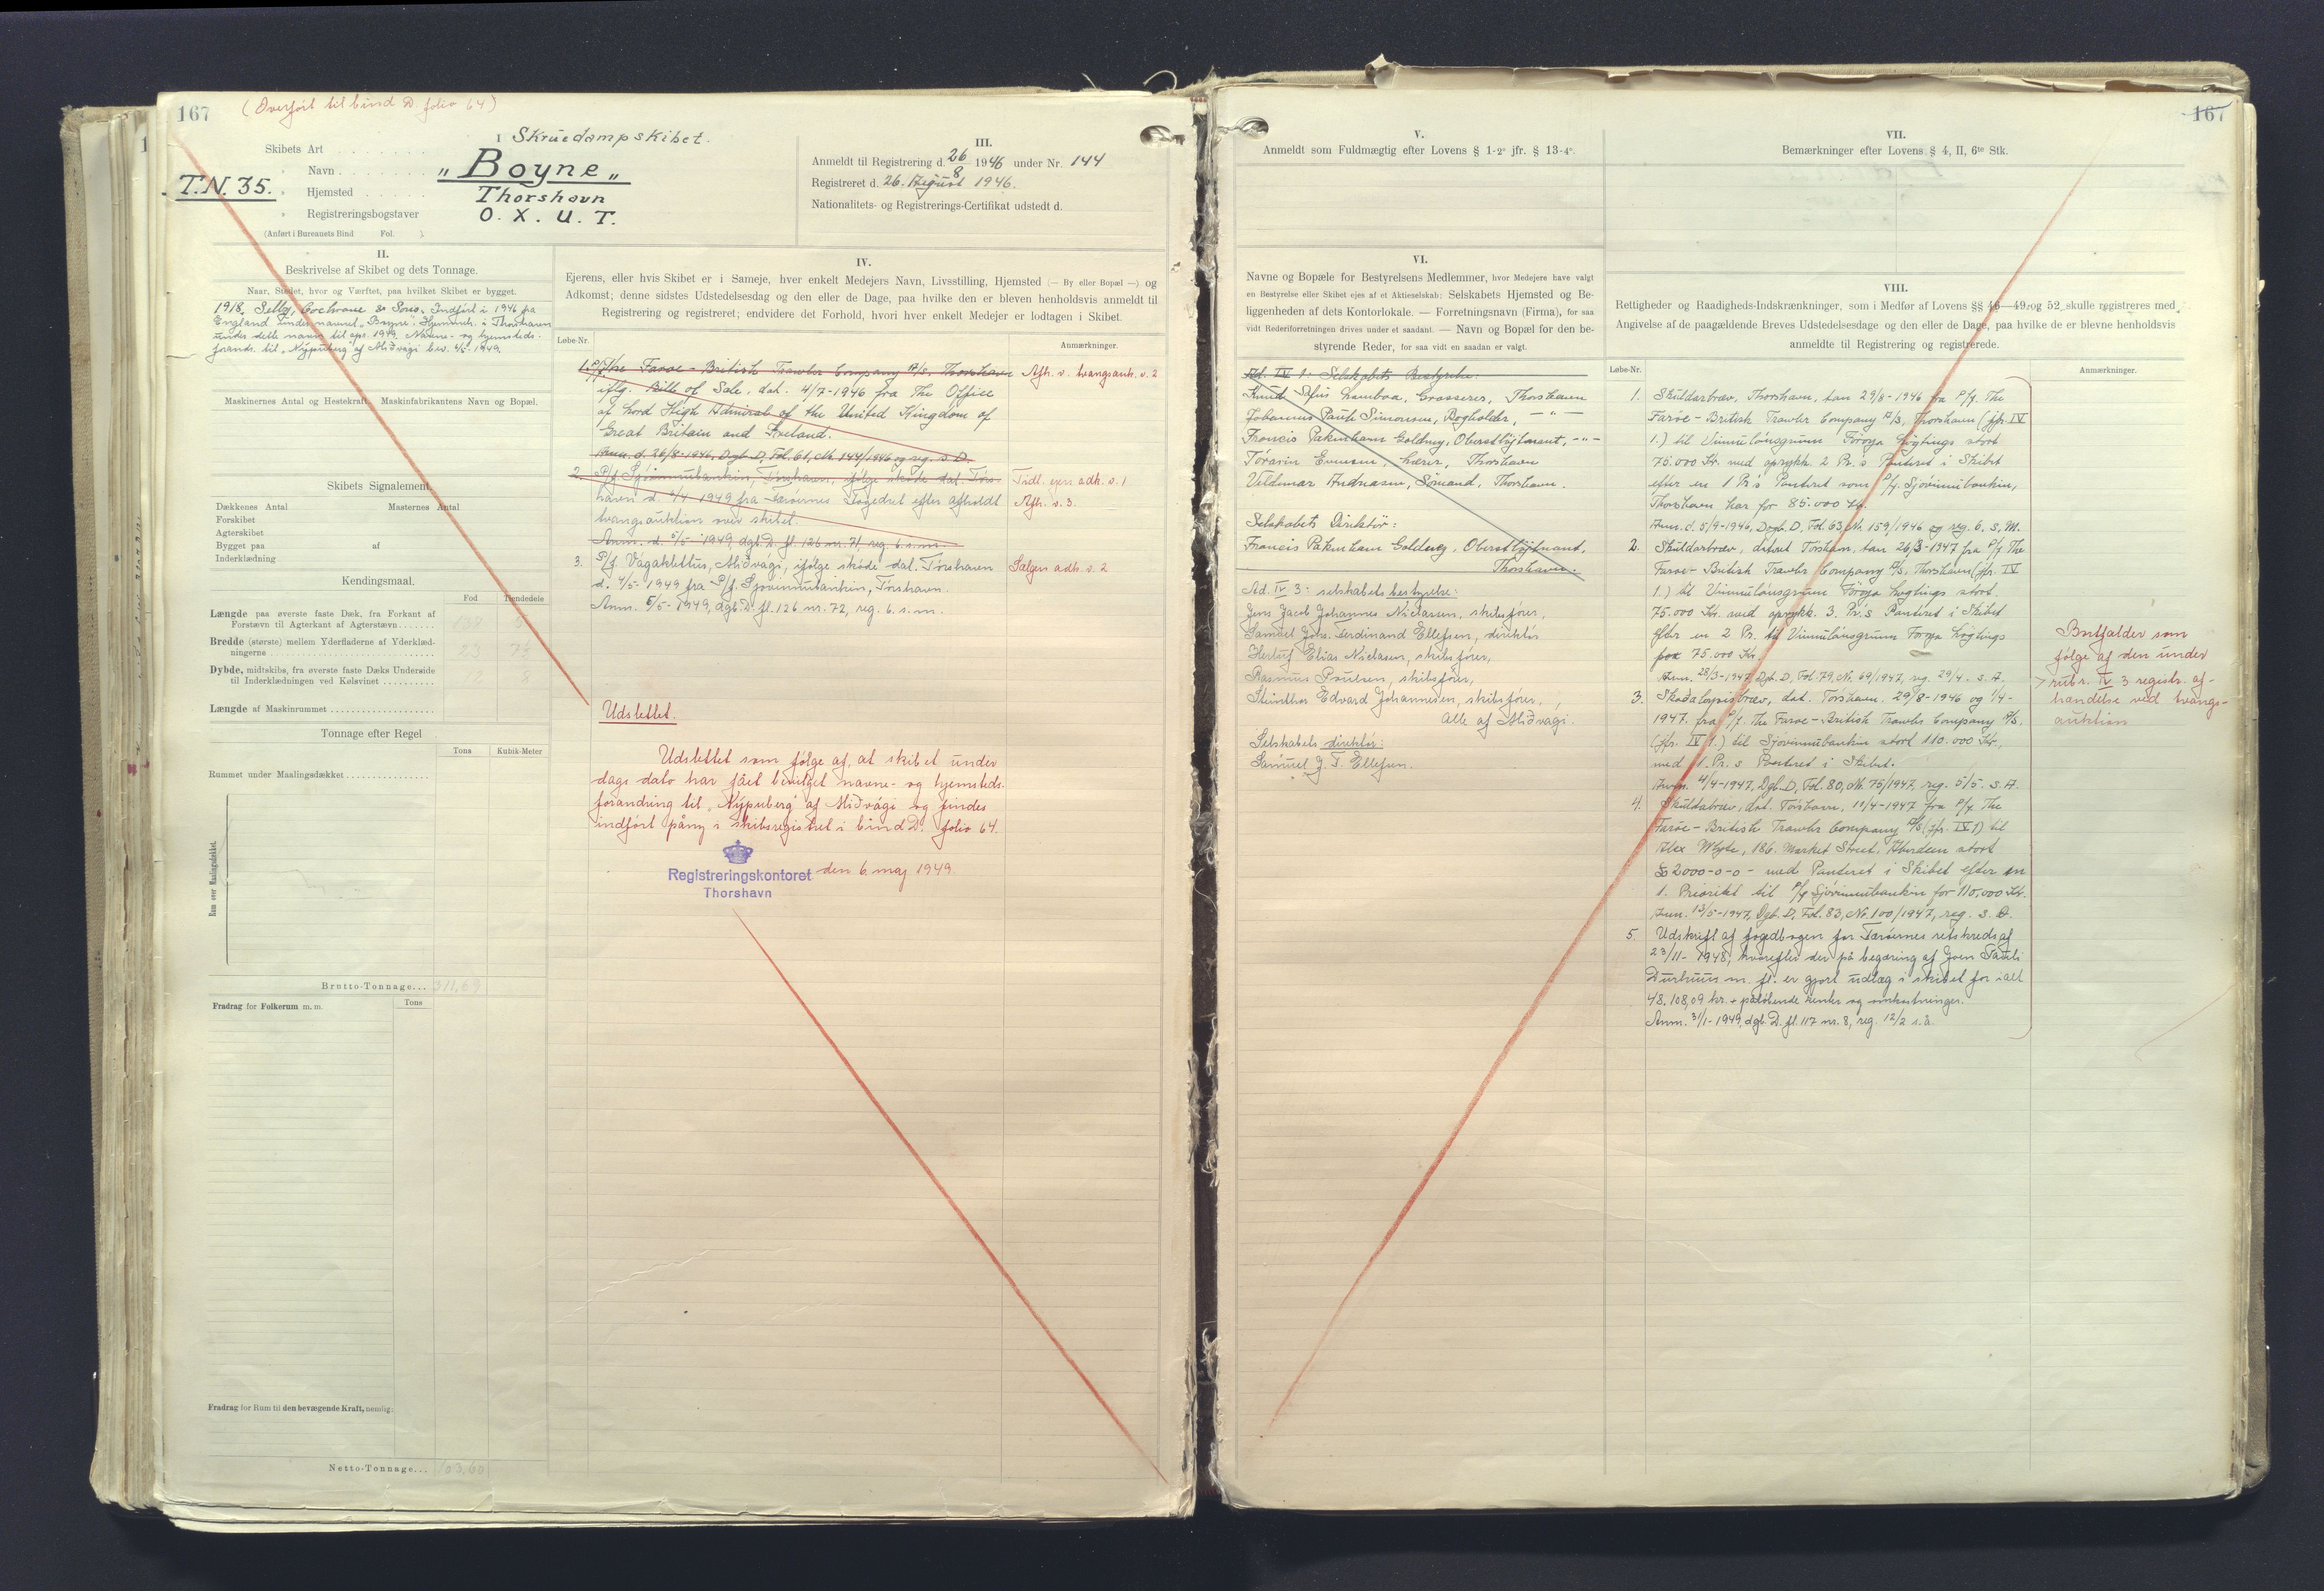 167
(Overført til bind D. folio 64)
I Skruedampskibet.
Skibets Art
" Navn
„Boyne„
T.N. 35.
" Hjemsted
Thorshavn
" Registreringsbogstaver
O. X. U. T.
(Anført i Bureauets Bind Fol. ).
III.
Anmeldt til Registrering d. 26/8 1946 under Nr. 144
Registreret d. 26. August 1946.
Nationalitets- og Registrerings-Certifikat udstedt d.
II.
Beskrivelse af Skibet og dets Tonnage.
Naar, Stedet, hvor og Værftet, paa hvilket Skibet er bygget.
1918, Selby, Cochrane & Sons. Indført i 1946 fra
England under navnet „Boyne". Hjemmeh. i Thorshavn
under dette navn til apr. 1949. Navne- og hjemsteds-
forandr. til „Nýpuberg" af Miðvági bev. 6/5-1949.
Maskinernes Antal og Hestekraft. Maskinfabrikantens Navn og Bopæl.
Skibets Signalement.
Dækkenes Antal Masternes Antal
Forskibet
Agterskibet
Bygget paa af
Inderklædning
Kendingsmaal.
Fod Tiendedele
Længde paa øverste faste Dæk, fra Forkant af
Forstævn til Agterkant af Agterstævn
Bredde (største) mellem Yderfladerne af Yderklæd-
ningerne
23
Dybde, midtskibs, fra øverste faste Dæks Underside
til Inderklædningen ved Kølsvinet
12 8
Længde af Maskinrummet
Tonnage efter Regel
Tons Kubik-Meter
Rummet under Maalingsdækket
Rum over Maalingsdækket.
Brutto-Tonnage... 311,69
Fradrag for Folkerum m. m.
Tons
Fradrag for Rum til den bevægende Kraft, nemlig:
Netto-Tonnage... 103.60
IV.
Ejerens, eller hvis Skibet er i Sameje, hver enkelt Medejers Navn, Livsstilling, Hjemsted (— By eller Bopæl —) og
Adkomst; denne sidstes Udstedelsesdag og den eller de Dage, paa hvilke den er bleven henholdsvis anmeldt til
Registrering og registreret; endvidere det Forhold, hvori hver enkelt Medejer er lodtagen i Skibet.
Løbe-Nr.
Anmærkninger.
1. P/f The Faroe-British Trawler Company A/S. Thorshavn
Afh. v. tvangsauk. s. 2
iflg. Bille of Sale, dat. 4/7-1946 fra The Office
of Lord High Admiral of the United Kingdom of
Great Britain and Ireland.
Anm. d. 26/8-1946, Dgb. D, Fol. 61, Nr. 144/1946 og reg. s. D.
2. P/f. Sjóvinnubankin, Tórshavn, ifølge skøde dat. Tórs-
Tidl. ejer adh. s. 1
havn d. 5/4 1949 fra Færøernes fogedret efter afholdt
Afh. s. 3.
tvangsauktion over skibet.
Anm. d. 5/5-1949, dgb. D. fl. 126 nr. 71, reg. 6. s. m.
3. P/f. Vágaklettur, Miðvági, ifølge skøde dat. Tórshavn
Sælgen adh. s. 2
d. 4/5-1949 fra P/f. Sjóvinnubankin, Tórshavn.
Anm. 5/5-1949, dgb. D. fl. 126 nr. 72, reg. 6. s. m.
Udslettet.
Udslettet som følge af, at skibet under
dags dato har fået bevilget navne- og hjemsteds-
forandring til „Nýpuberg" af Miðvági og findes
indført påny i skibsregistret i bind D. folio 64.
Registreringskontoret den 6. maj 1949.
Thorshavn
167
V.
Anmeldt som Fuldmægtig efter Lovens § 1-2° jfr. § 13-4°.
VI.
Navne og Bopæle for Bestyrelsens Medlemmer, hvor Medejere have valgt
en Bestyrelse eller Skibet ejes af et Aktieselskab: Selskabets Hjemsted og Be-
liggenheden af dets Kontorlokale. — Forretningsnavn (Firma), for saa
vidt Rederiforretningen drives under et saadant. — Navn og Bopæl for den be-
styrende Reder, for saa vidt en saadan er valgt.
Ad. IV 1: Selskabets Bestyrelse:
Knud Grosserer, Thorshavn
Johannes Pauli Simonsen, Bogholder, — " —
Francis Pakenham Goldney, Oberstløjtnant, - " -
Tórarin Evensen, Lærer, Thorshavn
Valdimar Andreasen, Sømand, Thorshavn.
Selskabets Direktør:
Francis Pakenham Goldney, Oberstløjtnant,
Thorshavn.
Ad. IV 3: selskabets bestyrelse:
Jens Jacob Johannes Niclasen, skibsfører,
Samuel Johs. Ferdinand Ellefsen, direktør
Herluf Elias Niclasen, skibsfører,
Rasmus Poulsen, skibsfører,
Steinthor Edvard Johannesen, skibsfører,
Alle af Miðvagi.
Selskabets direktør:
Samuel J. F. Ellefsen.
VII.
Bemærkninger efter Lovens § 4, II, 6te Stk.
VIII.
Rettigheder og Raadigheds-Indskrænkninger, som i Medfør af Lovens §§ 46—49 og 52 skulle registreres med
Angivelse af de paagældende Breves Udstedelsesdage og den eller de Dage, paa hvilke de er blevne henholdsvis
anmeldte til Registrering og registrerede.
Løbe-Nr.
Anmærkninger.
1. Skuldarbræv, Thorshavn, tan 29/8-1946 fra P/f. The
Faroe-British Trawler Company A/S, Thorshavn (jfr. IV
1.) til Vinnulánsgrunn Føroya Løgtings stórt
75.000 Kr. með upprykk. 2 Pr.s Panteret i Skibet
eftir en 1 Pr.s Panteret som P/f. Sjóvinnubankin,
Thorshavn har for 85.000 Kr.
Anm. d. 5/9-1946, Dgb. D, Fol. 63, Nr. 159/1946 og reg. 6. s. M.
2. Skuldarbræv, Tórshavn, tan 26/3-1947 fra P/f The
Faroe-British Trawler Company A/S, Thorshavn (jfr. IV
1.) til Vinnulánsgrunn Føroya Løgtings stórt
75.000 Kr. med oprykk. 3. Pr.s Panteret i Skibet
efter en 2 Pr. til Vinnulánsgrunn Føroya Løgtings
for 75.000 Kr.
Anm. 28/3-1947 Dgb. D, Fol. 79, Nr. 69/1947, reg. 29/4. s. A.
3. Skadesløysisbræv, dat. Tórshavn. 29/8-1946 og 1/4-
1947. fra P/f. The Faroe-British Trawler Company A/S.
(jfr. IV 1.) til Sjóvinnubankin stort 110.000 Kr.,
med 1. Pr.s Panteret i Skibet.
Anm. 4/4-1947, Dgb. D, Fol. 80, Nr. 75/1947, reg. 5/5. s. A.
4. Skuldabræv, dat. Tórshavn, 11/4-1947 fra P/f The
Faroe-British Trawler Company A/S (jfr. IV 1) til
Alex Whyte, 186. Market Street. Aberdeen stort
£ 2000-0-0- med Panteret i Skibet efter en
1. Prioritet til P/f Sjóvinnubankin for 110,000 Kr.
Anm. 13/5-1947, Dgb. D, Fol. 83, Nr. 100/1947, reg. s. D.
5. Udskrift af fogedbogen for Færøernes retskreds af
23/11-1948, hvorefter der på begæring af Joen Pauli
Durhuus m. fl. er gjort udlæg i skibet for ialt
48.108,09 kr. + påløbende renter og omkostninger.
Anm. 31/1-1949, dgb. D. fl. 117 nr. 8, reg. 12/2 s. å.
Bortfalder som
følge af den under
rubr. IV 3 registr. af-
handelse ved tvangs-
auktion